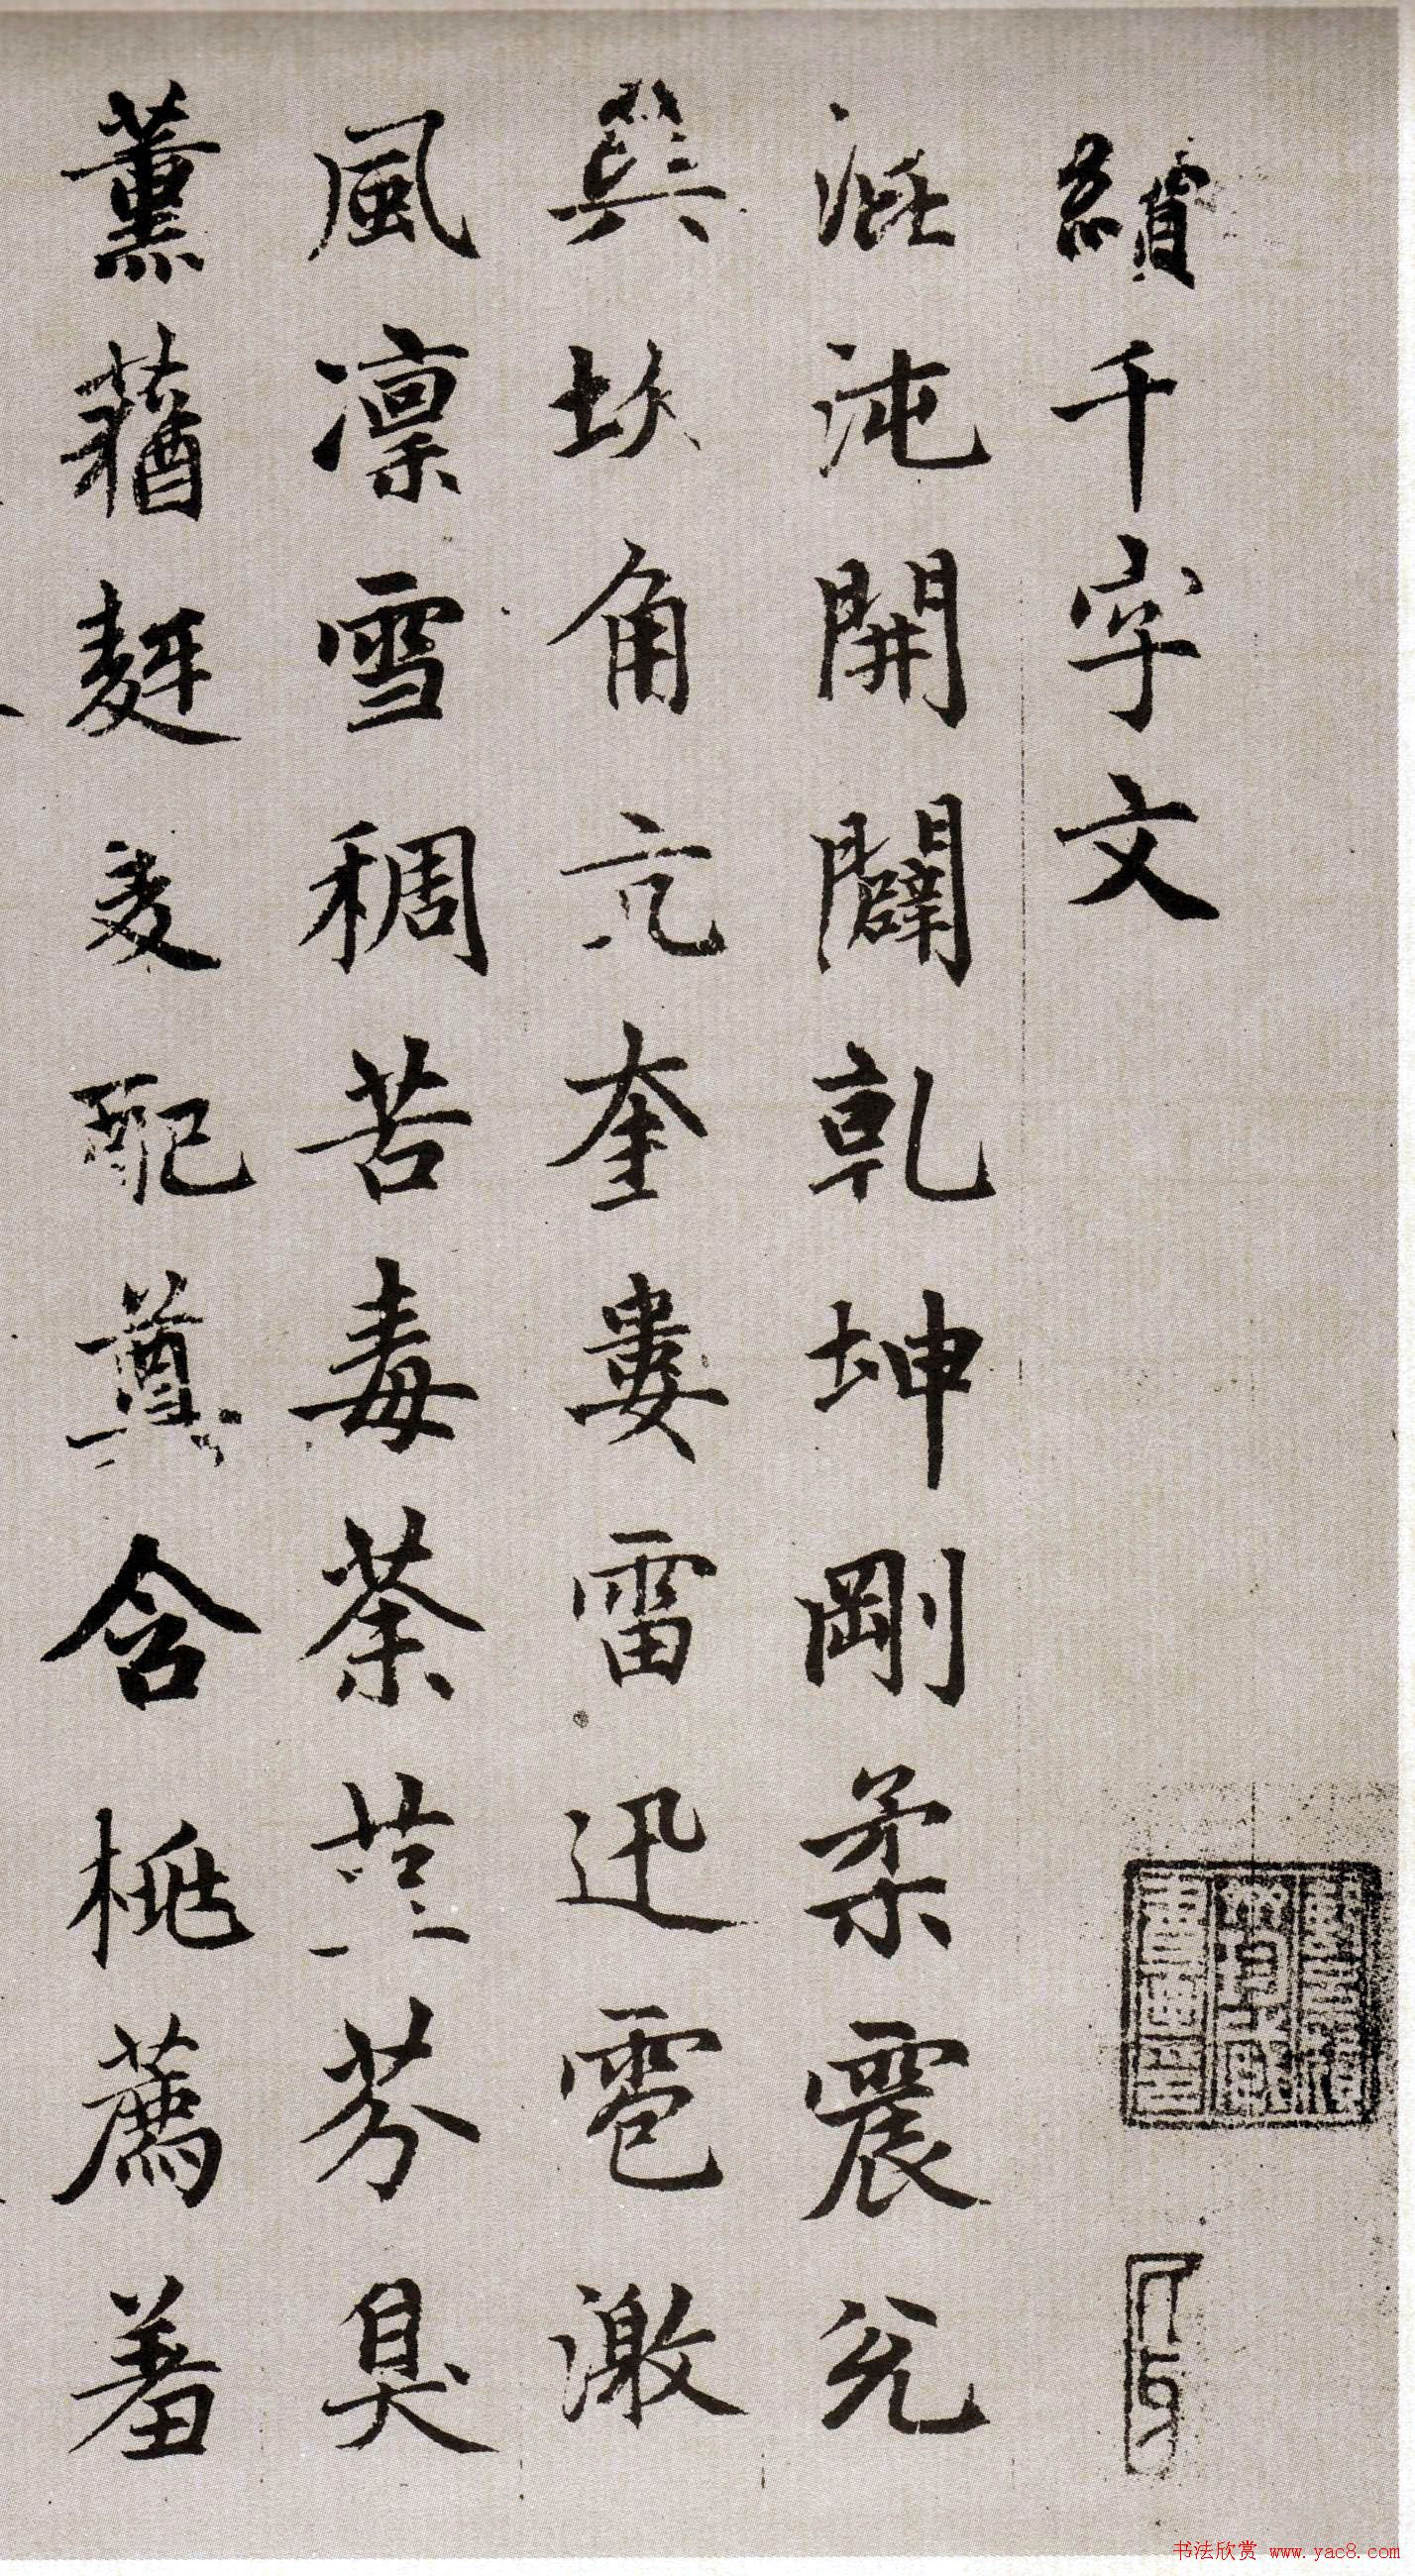 續千字文
混沌開闢乾坤剛柔震兌
巽坎角亢奎婁雷迅雹激
風凛雪稠苦毒荼荁芬臭
薰蕕麹麦配奠含桃薦羞
书法欣赏 www.yac8.com